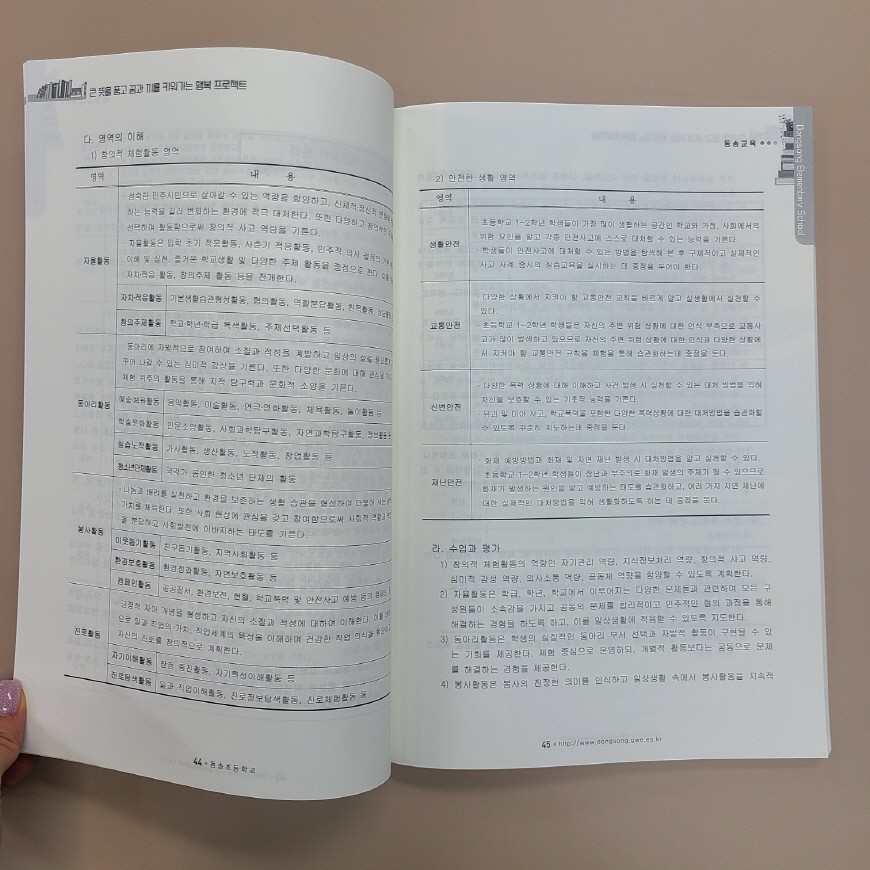 큰 뜻을 품고 꿈과 끼를 키워가는 행복 프로젝트
다. 영역의 이해
1) 창의적 체험활동 영역
영역
내 용
자율활동
· 성숙한 민주시민으로 살아갈 수 있는 역량을 함양하고, 신체적·정신적 변화에
하는 능력을 길러 변화하는 환경에 적극 대처한다. 또한 다양하고 창의적인
선택하여 활동함으로써 창의적 사고 역량을 기른다.
· 자율활동은 입학 초기 적응활동, 사춘기 적응활동, 민주적 의사 결정의 기본
이해 및 실천, 즐거운 학교생활 및 다양한 주제 활동을 중점으로 한다. 이를
· 자치적응 활동, 창의주제 활동 등을 전개한다.
자치적응활동
기본생활습관형성활동, 협의활동, 역할분담활동, 친목활동, 상담활동
창의주제활동
학교·학년·학급 특색활동, 주제선택활동 등
동아리활동
· 동아리에 자발적으로 참여하여 소질과 적성을 계발하고 일상의 삶을 풍요롭게
꾸어 나갈 수 있는 심미적 감성을 기른다. 또한 다양한 문화에 대해 관심을
체험 위주의 활동을 통해 지적 탐구력과 문화적 소양을 기른다.
예술·체육활동
음악활동, 미술활동, 연극·영화활동, 체육활동, 놀이활동 등
학술문화활동
인문소양활동, 사회과학탐구활동, 자연과학탐구활동, 정보활동
실습노작활동
가사활동, 생산활동, 노작활동, 창업활동 등
청소년단체활동
국가가 공인한 청소년 단체의 활동
봉사활동
· 나눔과 배려를 실천하고 환경을 보존하는 생활 습관을 형성하여 더불어 사는
가치를 체득한다. 또한 사회 현상에 관심을 갖고 참여함으로써 사회적 역할과
을 분담하고 사회발전에 이바지하는 태도를 기른다.
이웃돕기활동
친구돕기활동, 지역사회활동 등
환경보호활동
환경정화활동, 자연보호활동 등
캠페인활동
공공질서, 환경보전, 헌혈, 학교폭력 및 안전사고 예방 등의 캠페인
진로활동
· 긍정적 자아 개념을 형성하고 자신의 소질과 적성에 대하여 이해한다. 이를
으로 일과 직업의 가치, 직업세계의 특성을 이해하여 건강한 직업 의식을
자신의 진로를 창의적으로 계획한다.
자기이해활동
강점 증진활동, 자기특성이해활동 등
진로탐색활동
일과 직업이해활동, 진로정보탐색활동, 진로체험활동 등
44 ● 동송초등학교
동송교육 ●●●
Dongsong Elementary School
2) 안전한 생활 영역
영역
내 용
생활안전
· 초등학교 1~2학년 학생들이 가장 많이 생활하는 공간인 학교와 가정, 사회에서의
위험 요인을 알고 각종 안전사고에 스스로 대처할 수 있는 능력을 기른다.
· 학생들이 안전사고에 대처할 수 있는 방법을 탐색해 본 후 구체적이고 실제적인
사고 사례 중심의 실습교육을 실시하는 데 중점을 두어야 한다.
교통안전
· 다양한 상황에서 지켜야 할 교통안전 규칙을 바르게 알고 실생활에서 실천할 수
있다.
· 초등학교 1~2학년 학생들은 자신의 주변 위험 상황에 대한 인식 부족으로 교통사
고가 많이 발생하고 있으므로 자신의 주변 위험 상황에 대한 인식과 다양한 상황에
서 지켜야 할 교통안전 규칙을 체험을 통해 습관화하는데 중점을 둔다.
신변안전
· 다양한 폭력 상황에 대해 이해하고 사건 발생 시 실천할 수 있는 대처 방법을 익혀
자신을 보호할 수 있는 기초적 능력을 기른다.
· 유괴 및 미아 사고, 학교폭력을 포함한 다양한 폭력상황에 대한 대처방법을 습관화할
수 있도록 꾸준히 지도하는데 중점을 둔다.
재난안전
· 화재 예방방법과 화재 및 자연 재난 발생 시 대처방법을 알고 실천할 수 있다.
· 초등학교 1~2학년 학생들이 장난과 부주의로 화재 발생의 주체가 될 수 있으므로
화재가 발생하는 원인을 알고 예방하는 태도를 습관화하고, 여러 가지 자연 재난에
대한 실제적인 대처방법을 익혀 생활화하도록 하는 데 중점을 둔다.
라. 수업과 평가
1) 창의적 체험활동의 역량인 자기관리 역량, 지식정보처리 역량, 창의적 사고 역량,
심미적 감성 역량, 의사소통 역량, 공동체 역량을 함양할 수 있도록 계획한다.
2) 자율활동은 학급, 학년, 학교에서 이루어지는 다양한 문제들과 관련하여 모든 구
성원들이 소속감을 가지고 공동의 문제를 합리적이고 민주적인 협의 과정을 통해
해결하는 경험을 하도록 하고, 이를 일상생활에 적용할 수 있도록 지도한다.
3) 동아리활동은 학생의 실질적인 동아리 부서 선택과 자발적 활동이 구현될 수 있
는 기회를 제공한다. 체험 중심으로 운영하되, 개별적 활동보다는 공동으로 문제
를 해결하는 경험을 제공한다.
4) 봉사활동은 봉사의 진정한 의미를 인식하고 일상생활 속에서 봉사활동을 지속적
45 ● http://www.dongsong.gwe.es.kr